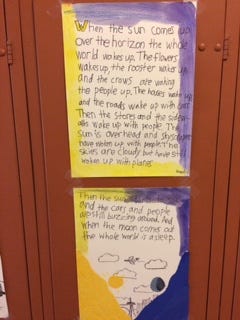 When the sun comes up
over the horizon the whole
world wakes up. The flowers
wakes up, the rooster wakes up
and the crows are waking
the people up. The houses wake up
and the roads wake up with cars
Then the stores and the side
wake up with people. The
sun is overhead and
have woken up with people The
skies are cloudy but have still
woken up with planes
Then the sun
and the cars and people
are still buzzing around. And
when the moon comes out
the whole world is asleep.